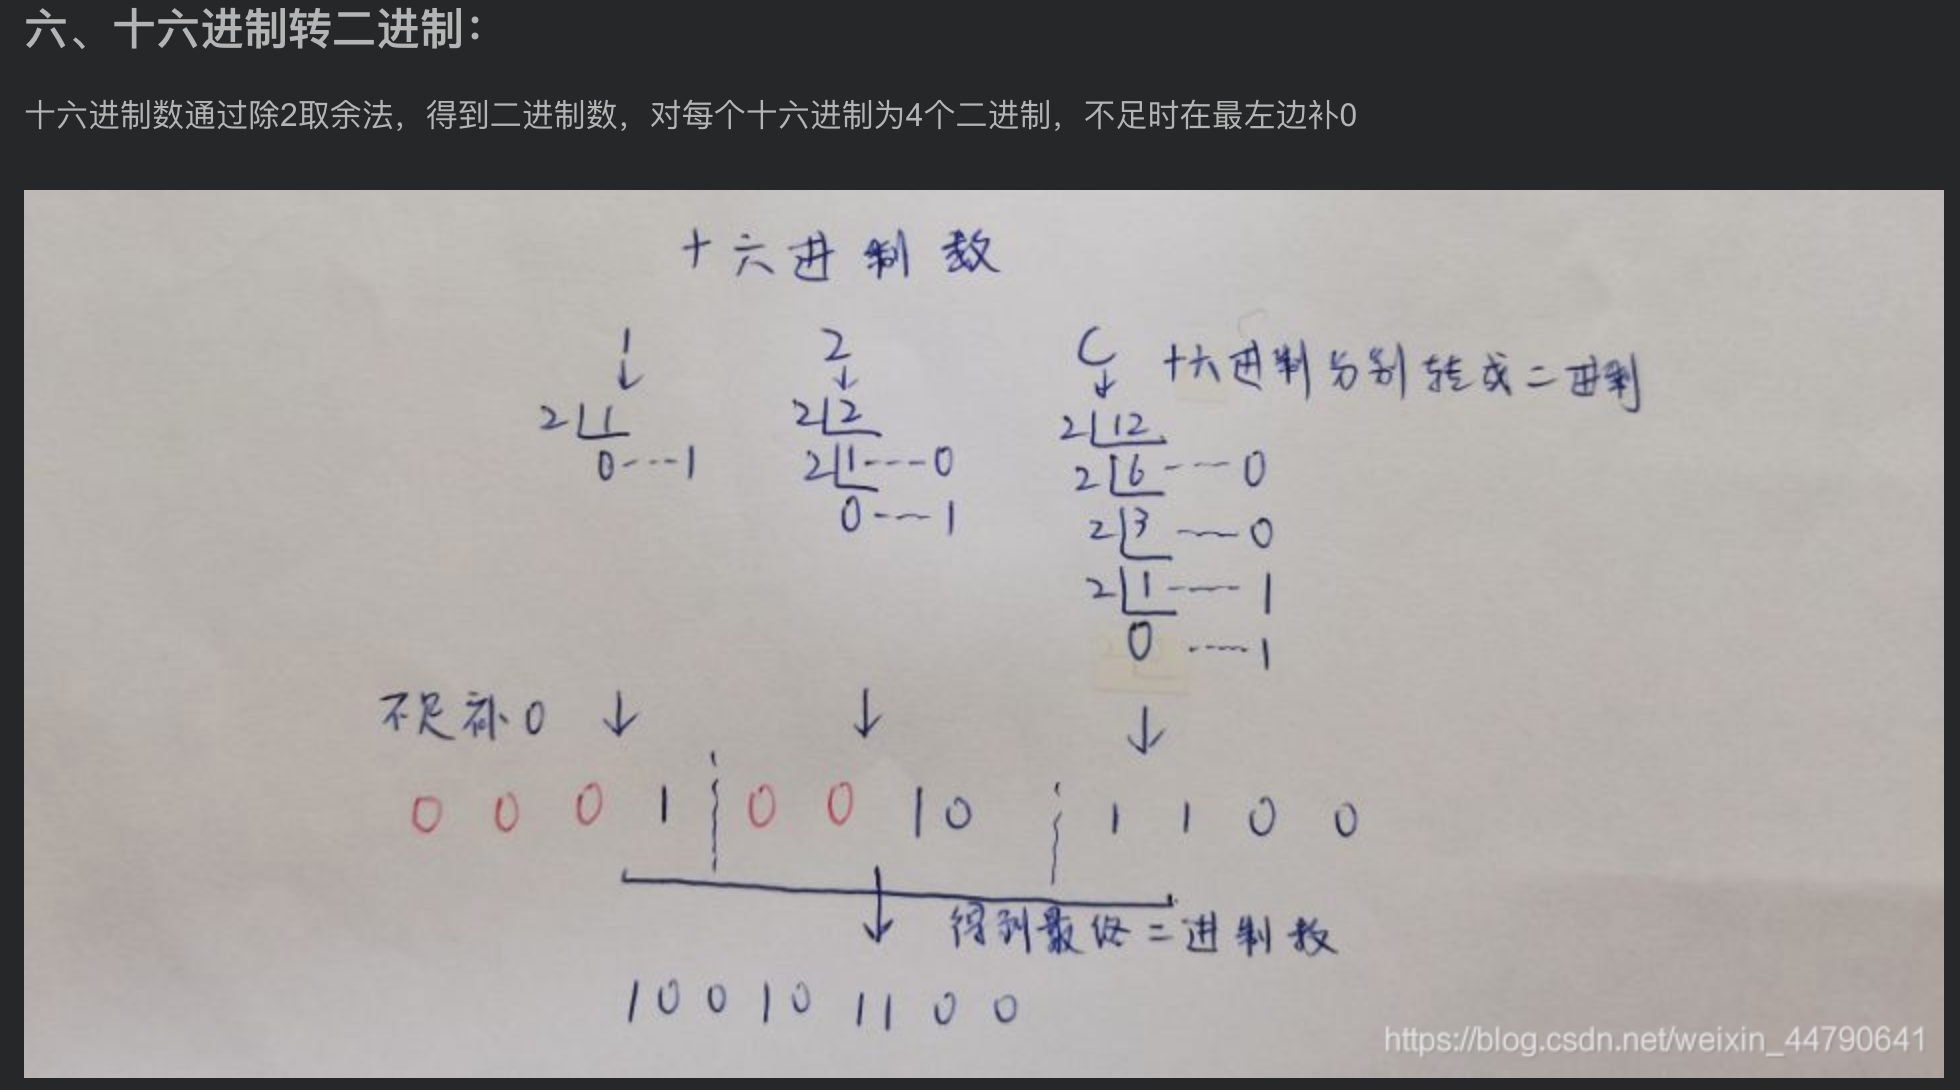 六、十六进制转二进制：
十六进制数通过除2取余法，得到二进制数，对每个十六进制为4个二进制，不足时在最左边补0
十六进制数
1 2 C 十六进制分别转成二进制
↓ ↓ ↓
2 1 2 2 2 12
0----1 2 1----0 2 6----0
0----1 2 3----0
2 1----1
0----1
不足补0 ↓ ↓ ↓
0 0 0 1 0 0 1 0 1 1 0 0
↓ 得到最终二进制数
1 0 0 1 0 1 1 0 0
https://blog.csdn.net/weixin_44790641